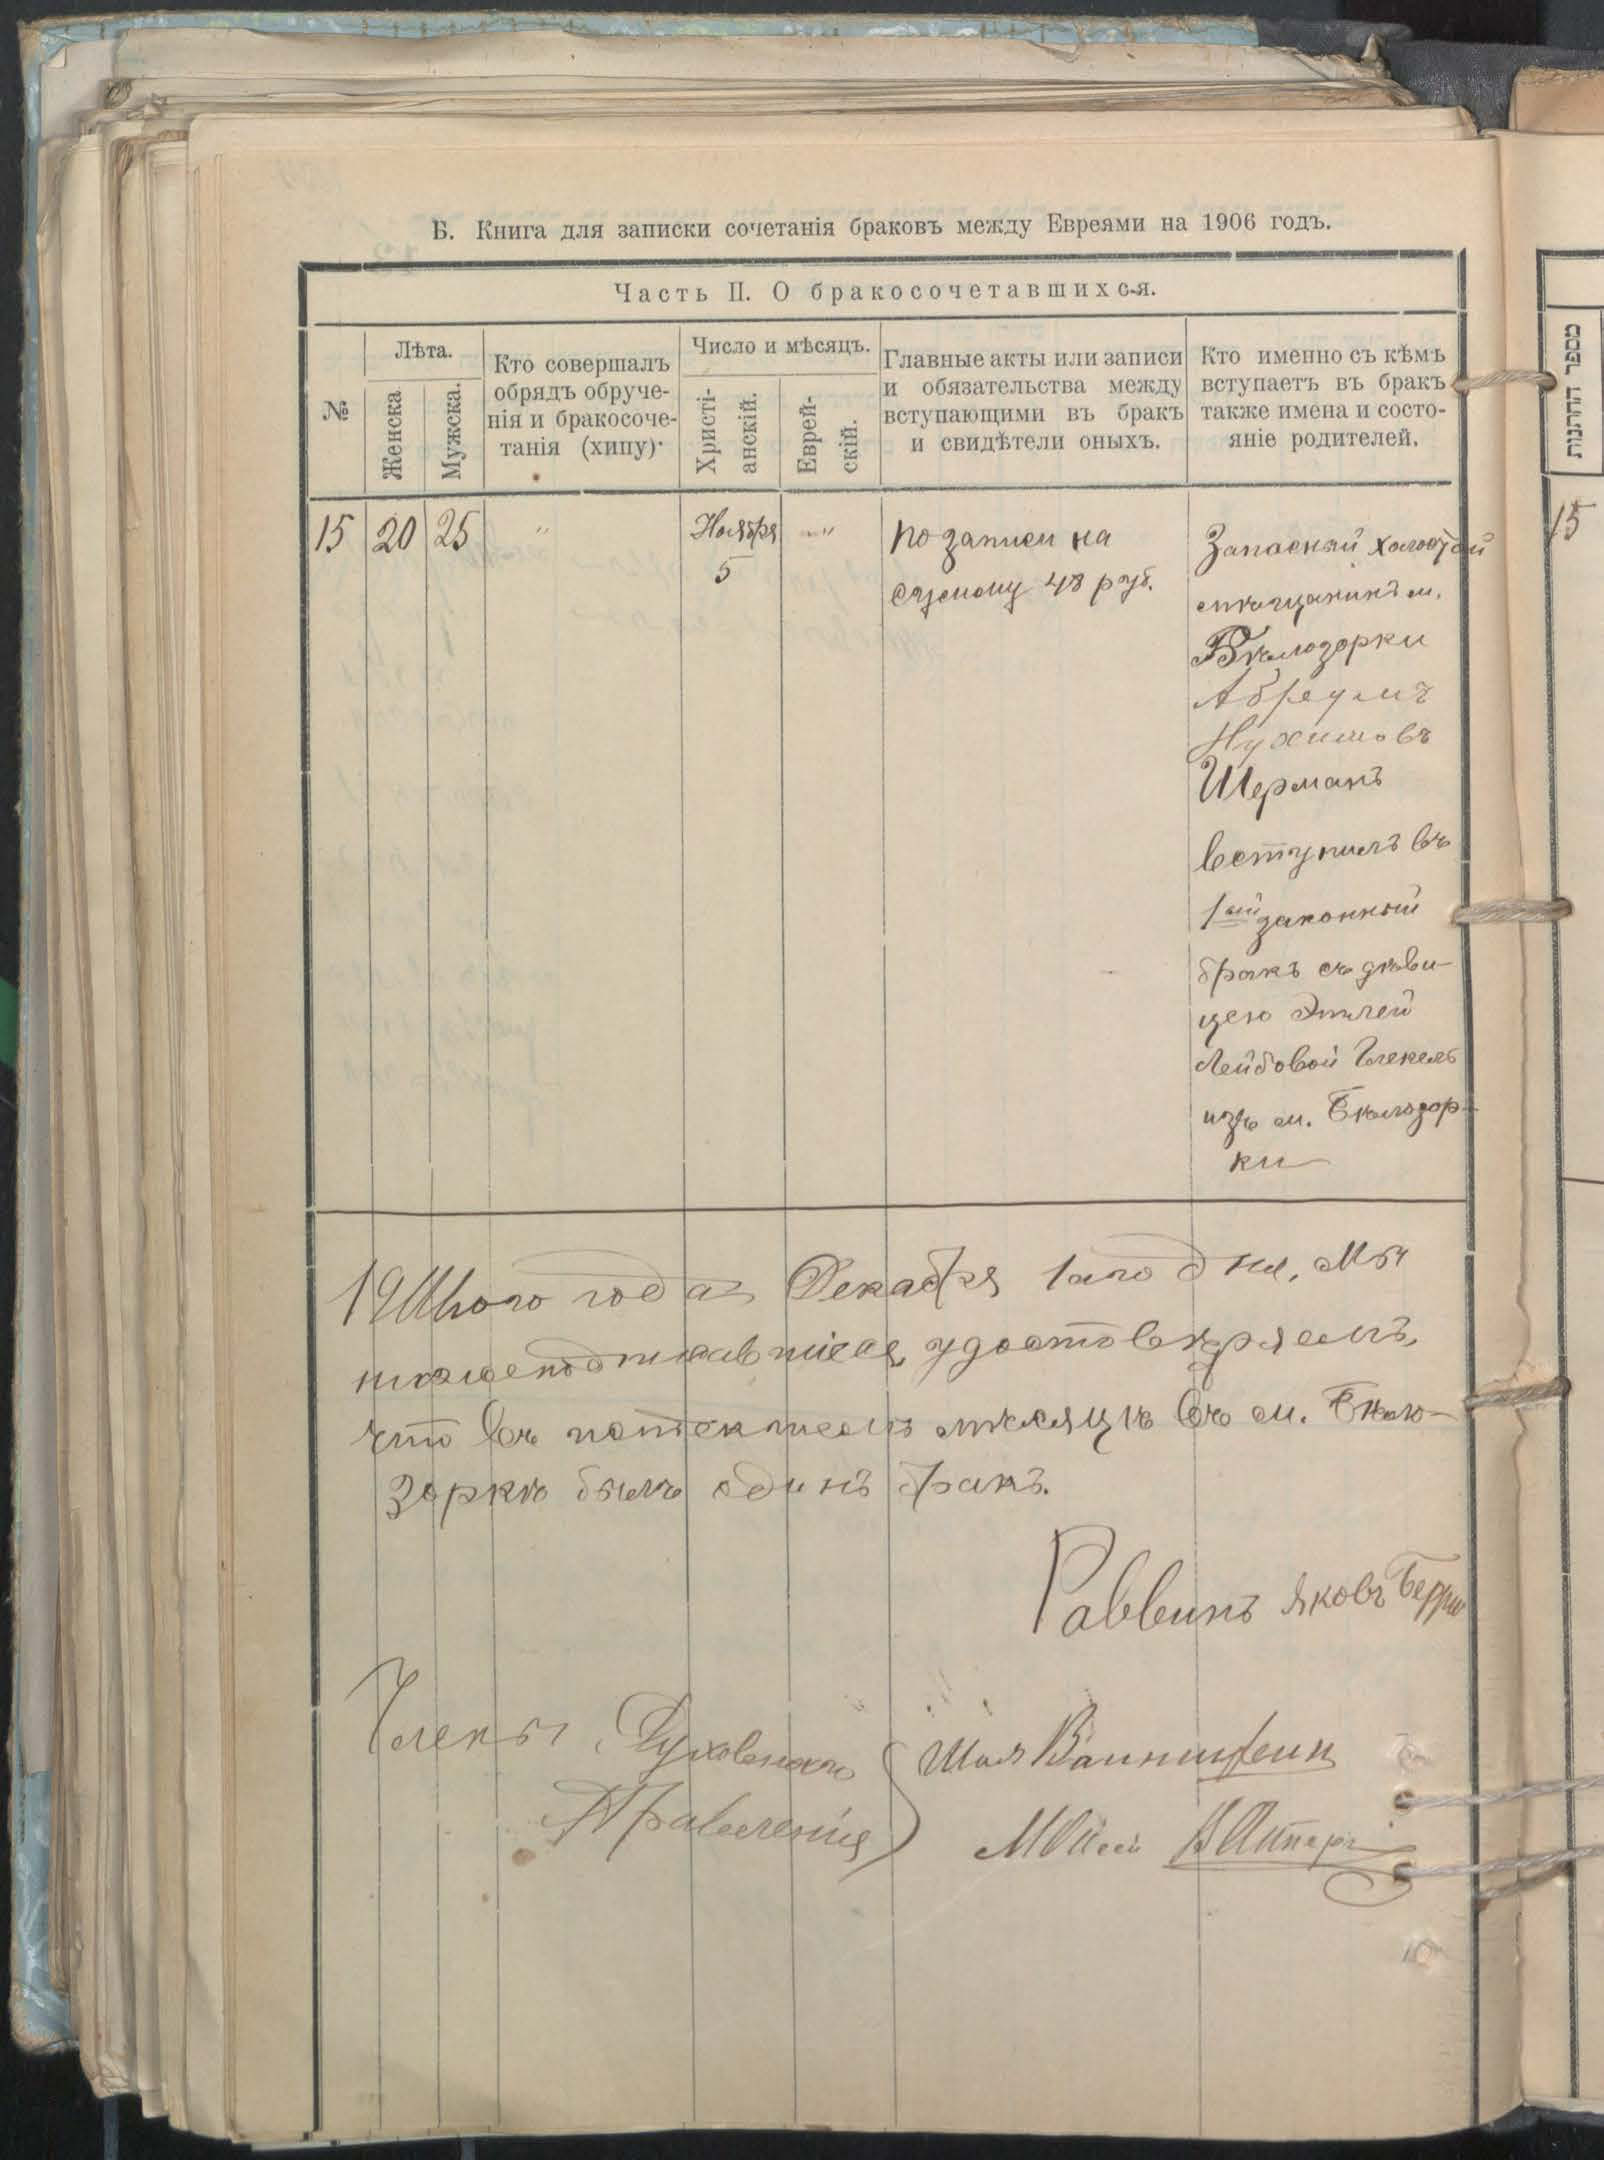 Б. Книга для записки сочетанія браковъ между Евреями на 1906 годъ.
Часть II. О бракосочетавшихся.
№
Лѣта.
Женска
Мужска.
Кто совершалъ
обрядъ обруче-
нія и бракосоче-
танія (хипу).
Число и мѣсяцъ.
Христі-
анскій.
Еврей-
скій.
Главные акты или записи
и обязательства между
вступающими въ бракъ
и свидѣтели оныхъ.
Кто именно съ кѣмъ
вступаетъ въ бракъ
также имена и состо-
яніе родителей.
15
20
25
"
Ноября
5
"
по записи на
сумому 48 руб.
Запасный холостой
мѣщанинъ м.
Бѣлозорки
Абрумъ
Нухимовъ
Шерманъ
вступилъ въ
1ый законный
бракъ съ дѣви-
цею Этлей
Лейбовой
изъ м. Бѣлозор-
ки
года Декабря 1го дня, мы
нижеподписавшіеся удостовѣряемъ,
что въ истекшемъ мѣсяцѣ въ м. Бѣло-
зоркѣ былъ одинъ бракъ.
Раввинъ Яковъ
Члены Духовнаго
Правленія
Шая
מספר החתנות
15